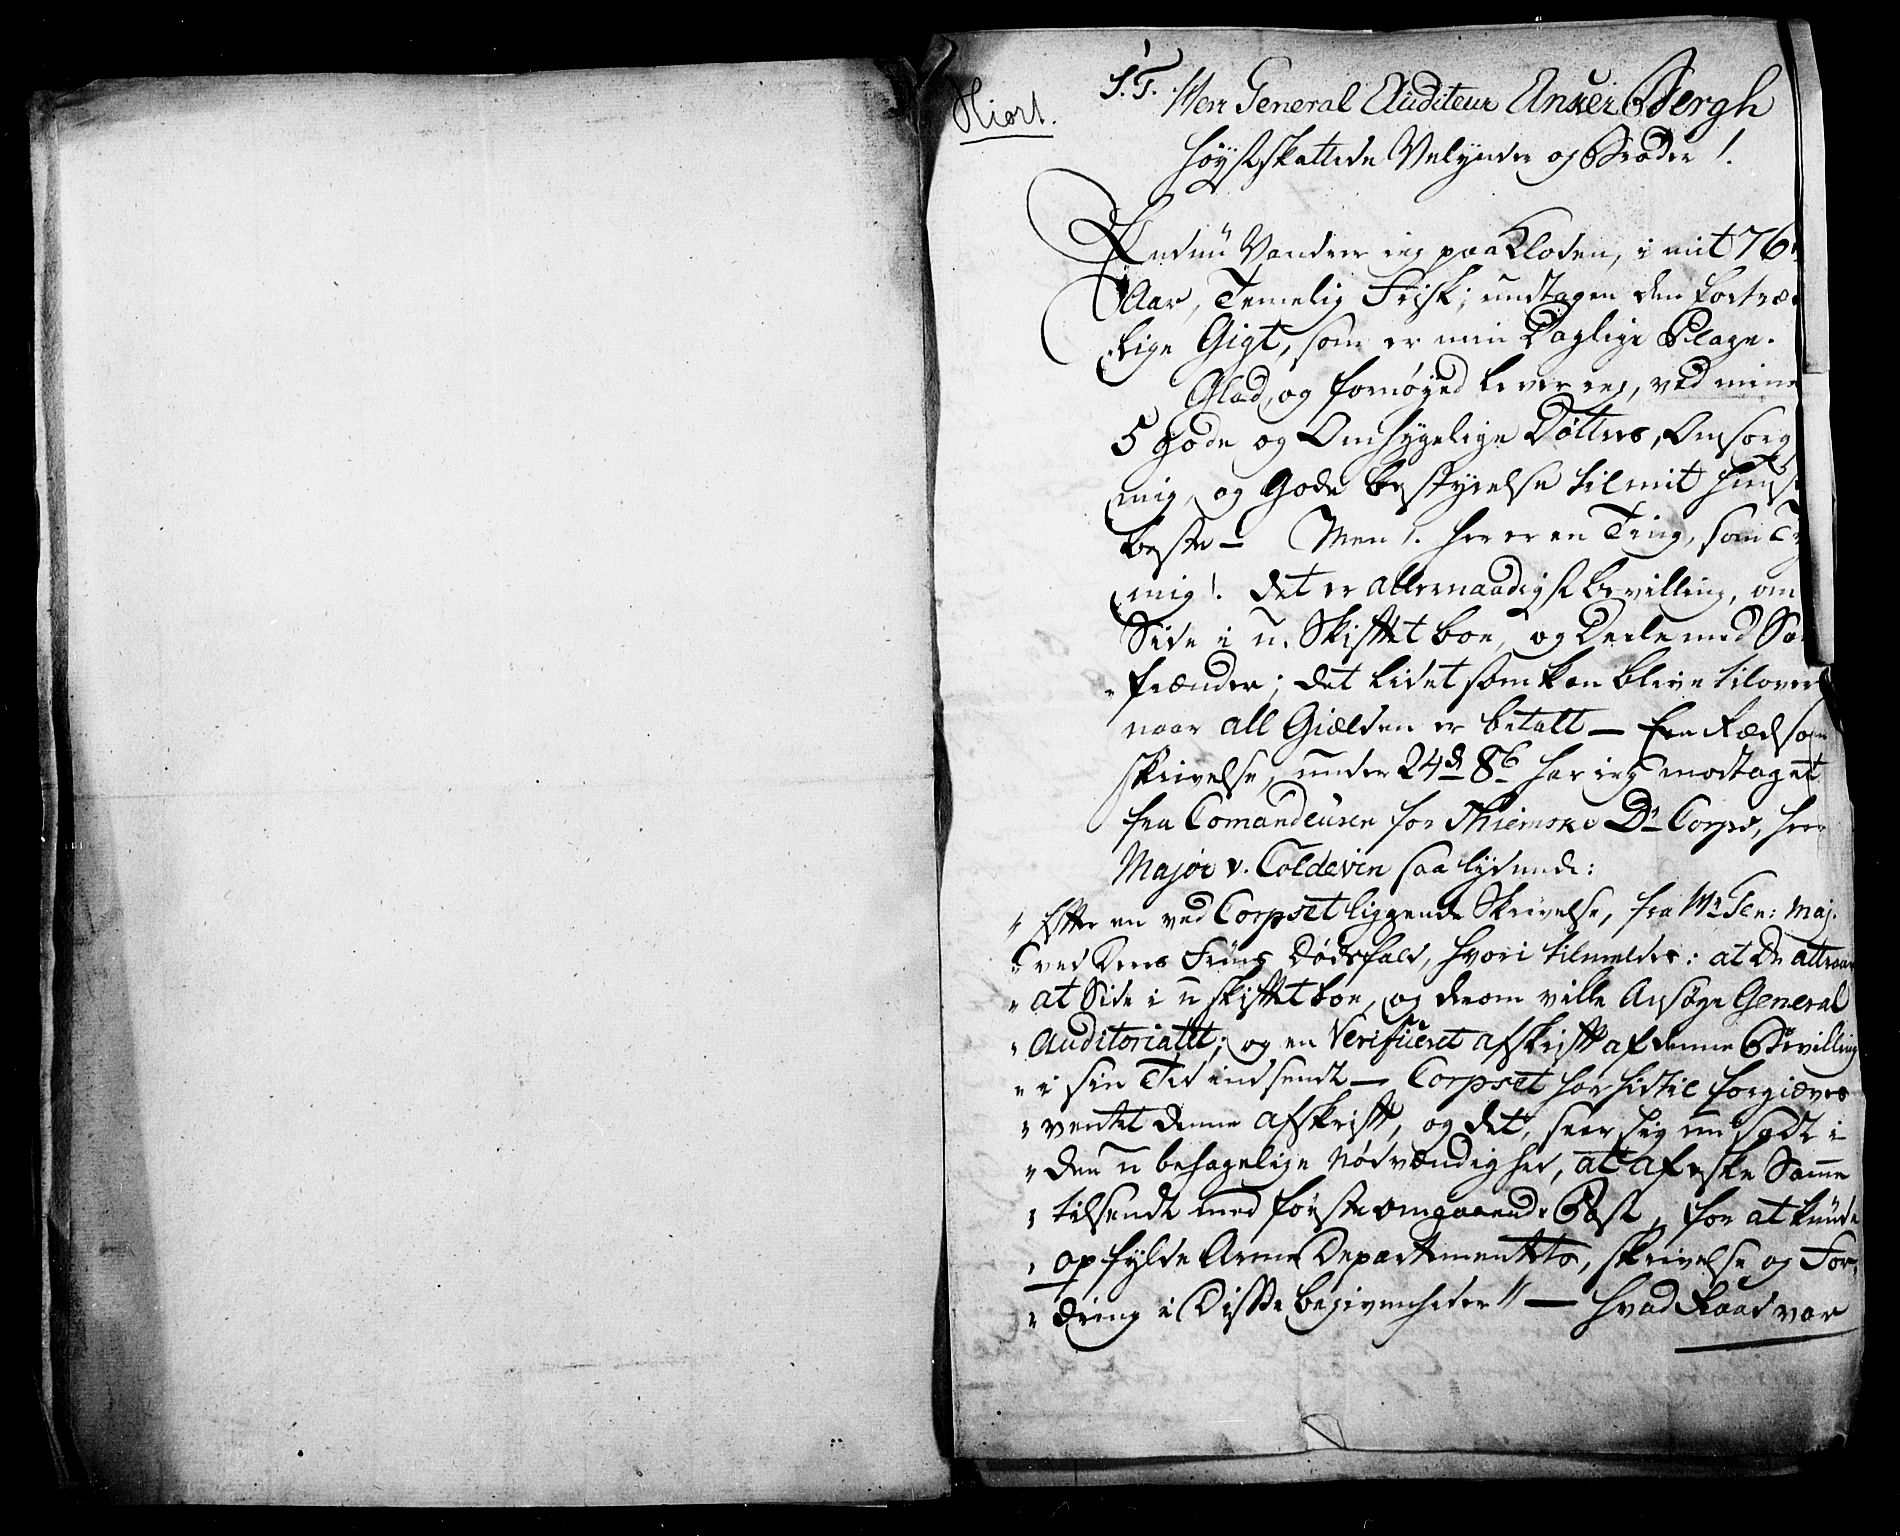 Hiort.
S. T. Herr General Auditeur Anker Bergh
Høystskattede Velynder og Broder!
Endnu Vandrer ieg paa Kloden, i mit 76
Aar, Temelig Frisk; undtagen den fortræ-
lige Gigt, som er min Daglige Plage.
Glad, og fornøyed lever ieg, ved mine
5 gode og Omhygelige Døttres, Omsorg
mig, og Gode bestyrelse til mit Huuses
beste — Men! her er en Ting, som
mig! det er allernaadigst bevilling, om
Side i u. Skifttet boe, og Deele med
frænder; det lidet som kan blive tilovers
naar all Giælden er betalt — Een Rædsom
skrivelse, under 24d 8b har ieg modtaget
fra Comandeuren for Thiemske D: Corps, herr
Major v. Coldevin saa lydende:
" Efter en ved Corpset liggende Skrivelse, fra Hr Gen: Maj.
" ved Deres Frues Dødsfald, hvori tilmeldes: at De attraaer
" at Side i u skifttet boe, og derom ville Ansøge General
" Auditoriatet; og en Verificeret afskrift af denne Bevilling
" i sin Tid indsendt — Corpset har hidtil forgiæves
" ventet denne afskrift, og det, seer sig nu sadt i
" den u behagelige Nødvændighed, at afæske Samme
" tilsendt med første omgaaende Post, for at kunde
" opfylde Arme Departementets, skrivelse og For-
" dring i Disse begivenheder" — Hvad Raad var